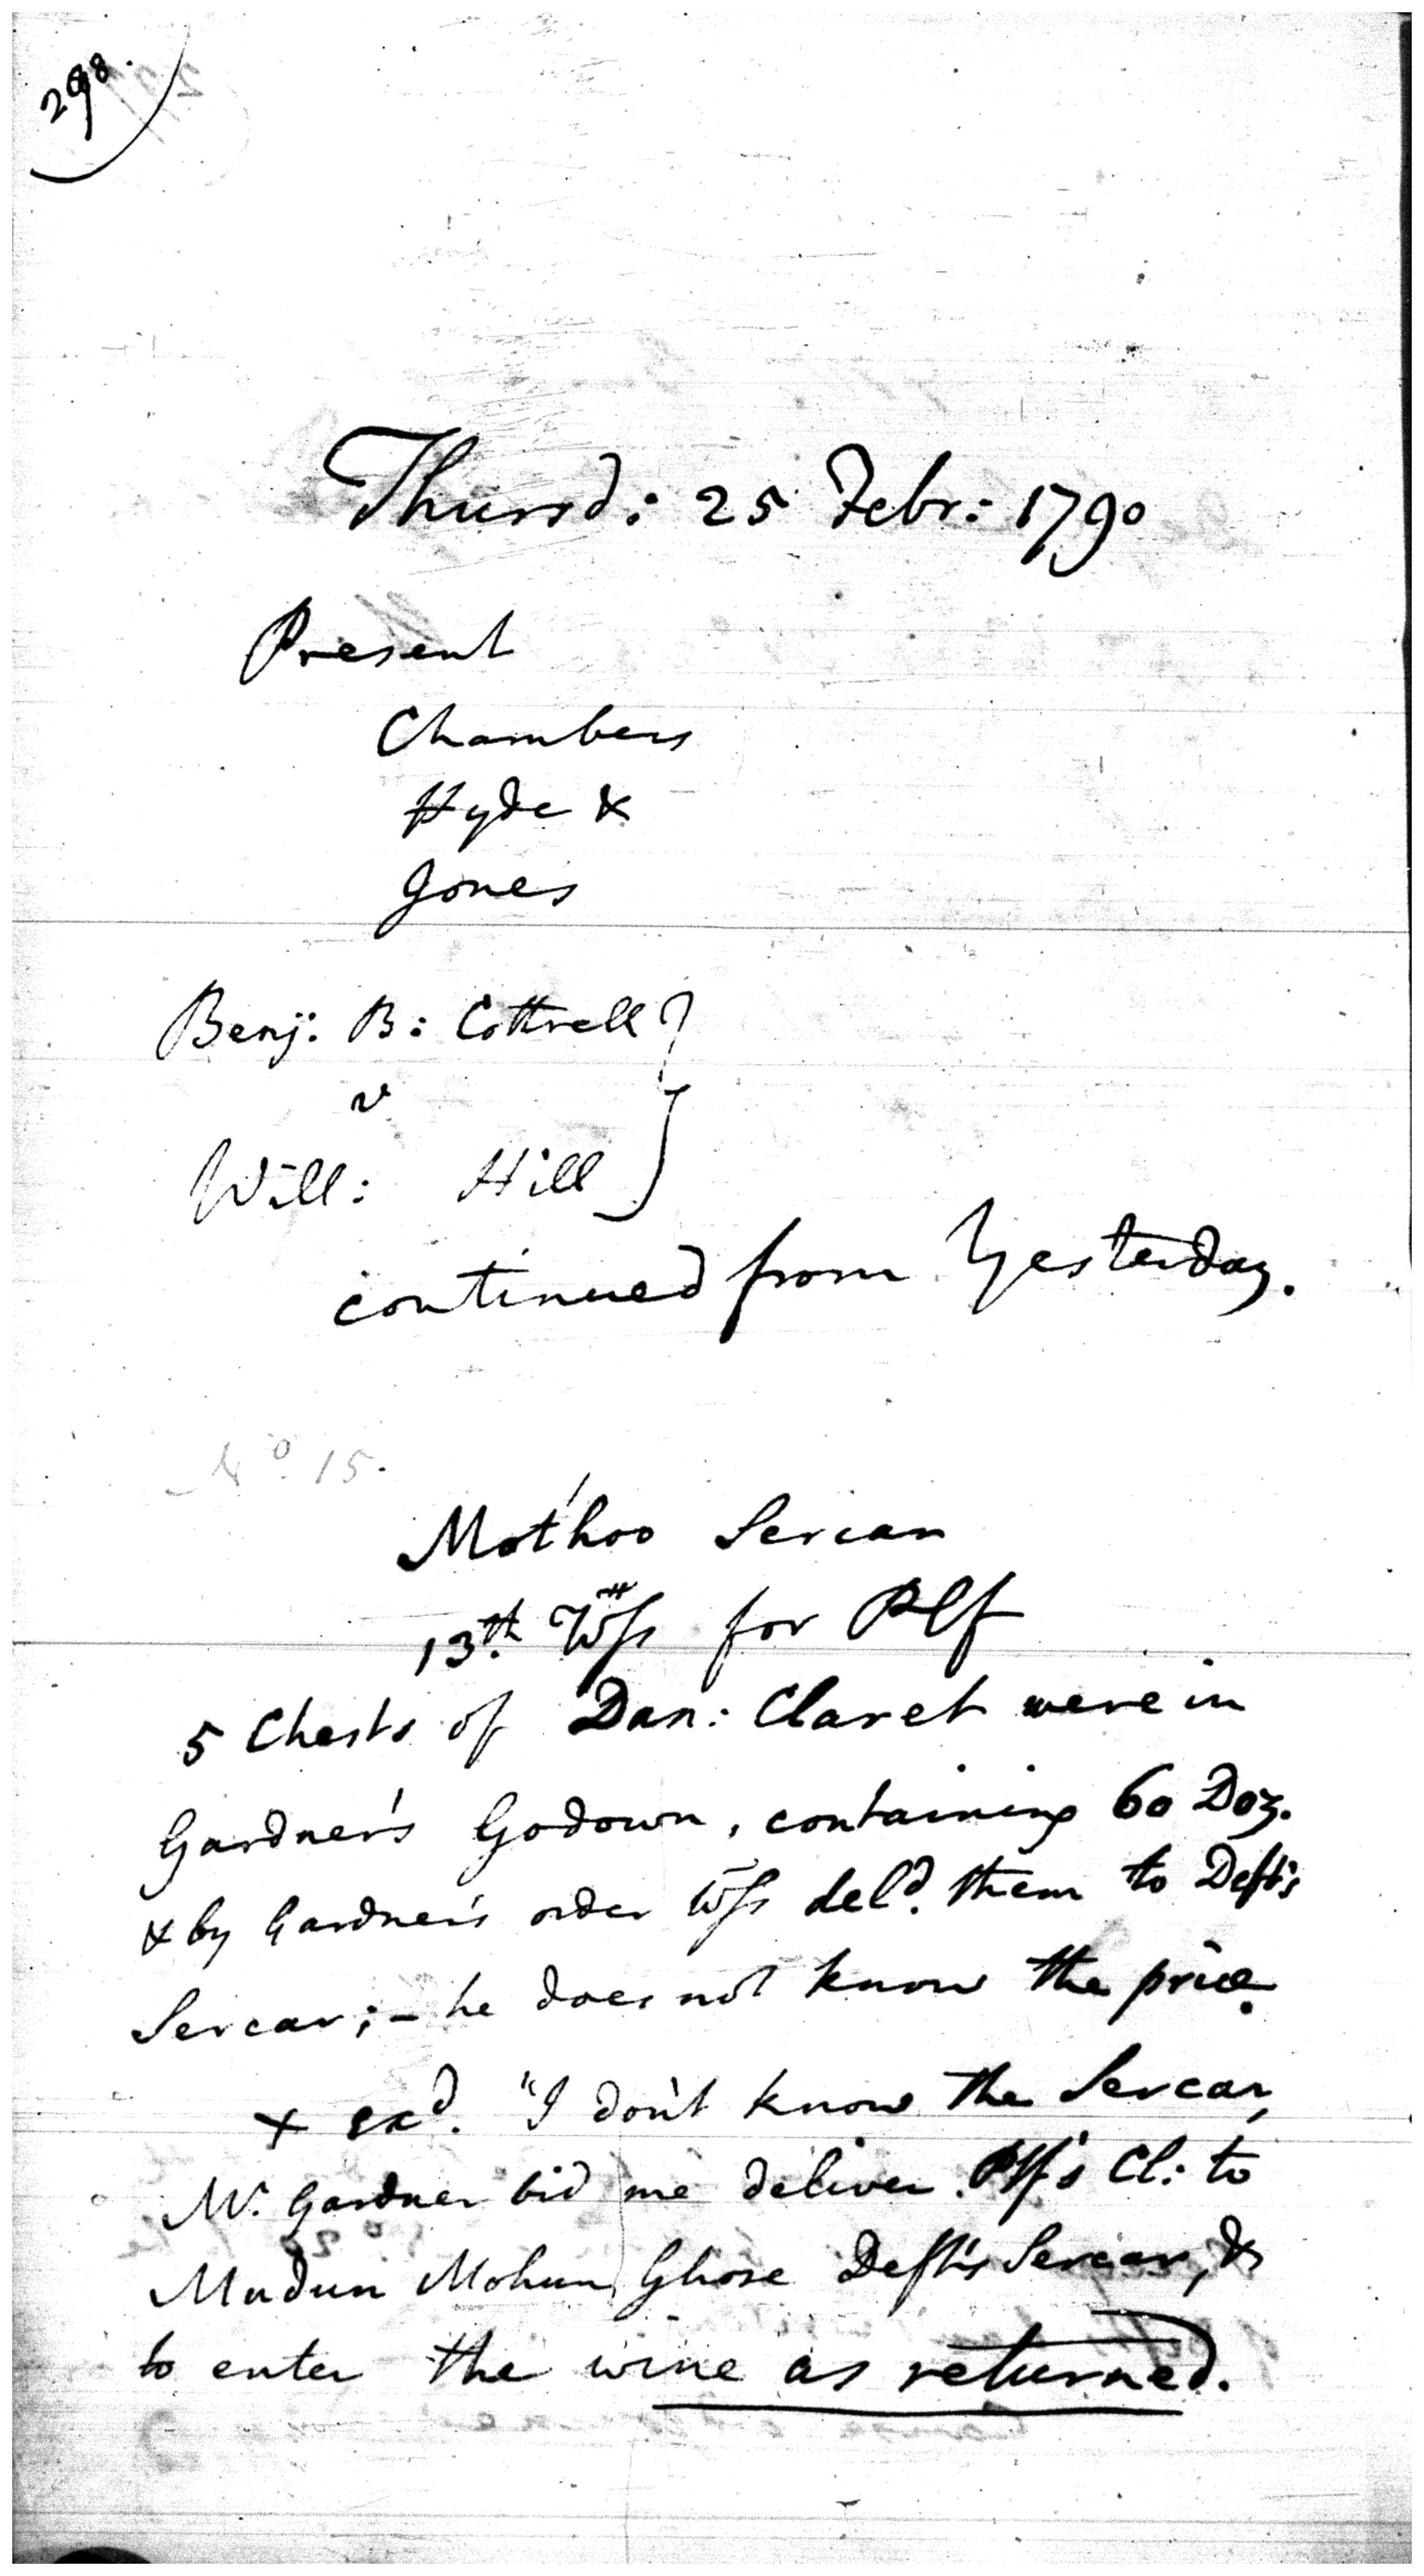 298.
Thursd: 25 Febr: 1790
Present
Chambers
Hyde &
Jones
Benj: B: Cottrell
v
Will: Hill
continued from Yesterday.
No. 15.
Mot'hoo Sercar
13th. Wss for Plf
5 Chests of Dan: Claret were in
Gardner's Godown, containing 60 Doz.
& by Gardner's order Wss deld. them to Deft's
Sercar; - he does not know the price.
+ exd. "I don't know the Sercar,
Mr. Gardner bid me deliver Plf's Cl: to
Mudun Mohun Ghose Deft's Sercar, &
to enter the wine as returned.